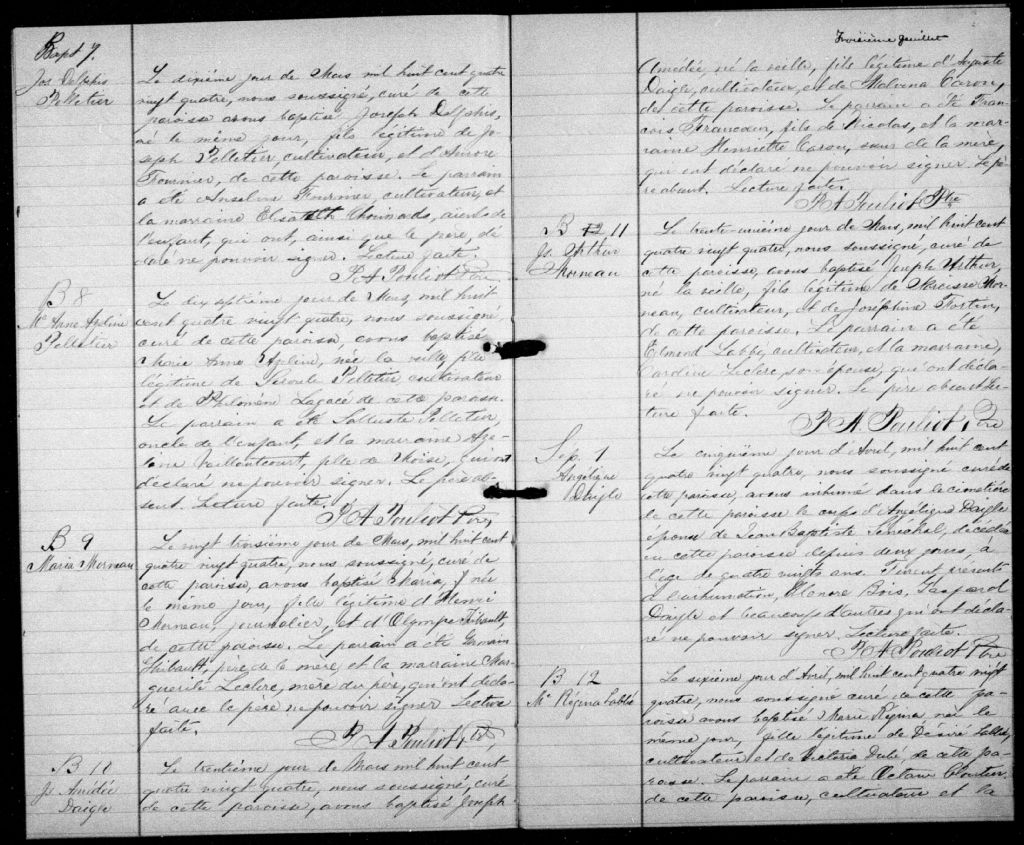 Bapt 7.
Jos Delphis
Pelletier
Le dixième jour de Mars mil huit cent quatre
vingt quatre, nous soussigné, curé de cette
paroisse avons baptisé Joseph Delphis,
né le même jour, fils légitime de Jo-
seph Pelletier cultivateur, et d'Aurore
Fournier, de cette paroisse. Le parrain
a été Anselme Fournier cultivateur, et
la marraine Elisabeth Chouinard, aieule de
l'enfant, qui ont, ainsi que le père, dé
claré ne pouvoir signer. Lecture faite.
P. A. Pouliot Ptre
B 8
Me Anne Azeline
Pelletier
Le dix septième jour de Mars, mil huit
cent quatre vingt quatre, nous soussigné,
curé de cette paroisse, avons baptisé
Marie Anne Azeline, née la veille, fille
légitime de Pelletier, cultivateur
et de Philomène Lagacé de cette paroisse.
Le parrain a été Salluste Pelletier,
oncle de l'enfant, et la marraine
Vaillancourt, fille de Moise, qui ont
déclaré ne pouvoir signer. Le père ab-
sent. Lecture faite.
P. A. Pouliot Ptre,
B 9
Maria Morneau
Le vingt troisième jour de Mars, mil huit cent
quatre vingt quatre, nous soussigné, curé de
cette paroisse, avons baptisé Maria, née
le même jour, fille légitime d'Henri
Morneau, journalier, et d'Olympe Thibault
de cette paroisse. Le parrain a été Germain
Thibault, père de la mère, et la marraine Mar-
guerite Leclerc, mère du père, qui ont décla-
ré avec le père ne pouvoir signer Lecture
faite.
P. A. Pouliot, Ptre,
B 10
Js Amédée
Daigle
Le trentième jour de Mars mil huit cent
quatre vingt quatre, nous soussigné, curé
de cette paroisse, avons baptisé Joseph
Troisième feuillet
Amédée, né la veille, fils légitime d'Auguste
Daigle, cultivateur, et de Malvina Caron,
de cette paroisse. Le parrain a été Fran-
cois Francoeur, fils de Nicolas, et la mar-
raine Henriette Caron, soeur de la mère,
qui ont déclaré ne pouvoir signer. Le pè
re absent. Lecture faite.
P. A. Pouliot Ptre
B 12 11
Js Arthur
Morneau
Le trente-unième jour de Mars, mil huit cent
quatre vingt quatre, nous soussigné, curé de
cette paroisse, avons baptisé Joseph Arthur,
né la veille, fils légitime de Narcisse Mor-
neau, cultivateur, et de Joséphine Fortin,
de cette paroisse. Le parrain a été
Elmond Labbé, cultivateur, et la marraine,
Caroline Leclerc, son épouse, qui ont décla-
ré ne pouvoir signer. Le père absent Lec-
ture faite.
P. A. Pouliot, Ptre
Sép. 1
Angélique
Daigle
Le cinquième jour d'Avril, mil huit cent
quatre vingt quatre, nous soussigné curé de
cette paroisse, avons inhumé dans le cimetière
de cette paroisse le corps d'Angélique Daigle
épouse de Jean Baptiste Sénéchal, décédée
en cette paroisse depuis deux jours, à
l'âge de quatre vingts ans. Furent présents
à l'inhumation, Elonore Bois, Gaspard
Daigle et beaucoup d'autres qui ont décla-
ré ne pouvoir signer. Lecture faite.
P. A. Pouliot Ptre
B 12
Me Régina Labbé
Le sixième jour d'Avril, mil huit cent quatre vingt
quatre, nous soussigné curé de cette pa-
roisse avons baptisé Marie Régina, née le
même jour, fille légitime de Désiré Labbé,
cultivateur et de Victoria Dubé, de cette pa-
roisse. Le parrain a été Octave Cloutier
de cette paroisse, cultivateur et la